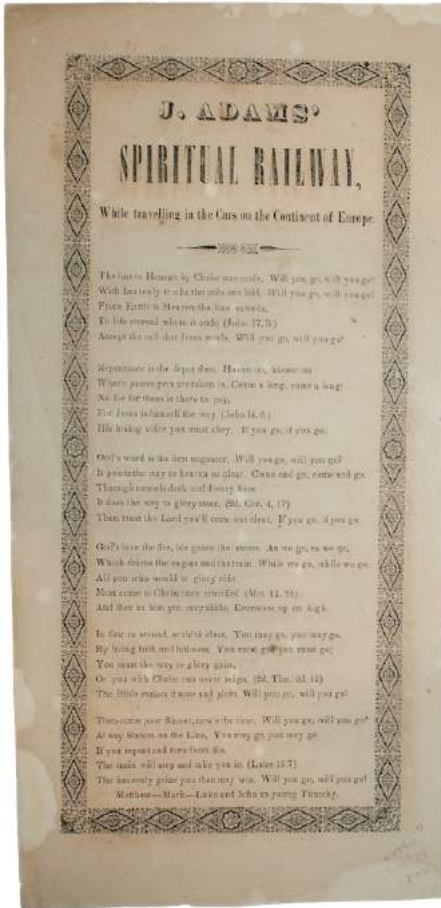 J. ADAMS'
SPIRITUAL RAILWAY,
While travelling in the Cars on the Continent of Europe.
The line to Heaven by Christ was made, Will you go, will you go?
With heavenly truths the rails are laid, Will you go, will you go?
From Earth to Heaven the line extends,
To life eternal where it ends, (John 17, 3.)
Accept the call that Jesus sends, Will you go, will you go?
Repentance is the depot then,
Where passengers are taken in, Come a long, come a long!
No fee for them is there to pay,
For Jesus is himself the way. (John 14, 6.)
His loving voice you must obey. If you go, if you go.
God's word is the first engineer, Will you go, will you go?
It points the way to heaven so clear, Come and go, come and go.
Through tunnels dark and dreary here
It does the way to glory steer. (2d. Cor. 4, 17)
Then trust the Lord you'll come out clear, If you go, if you go.
God's love the fire, his grace the steam, As we go, as we go,
Which drives the engine and the train, While we go, while we go.
All you who would to glory ride
Must come to Christ once crucified. (Mat. 11. 28)
And then in him you may abide, Evermore up on high.
In first or second, or third class, You may go, you may go.
By living faith and holiness, You must go, you must go;
You must the way to glory gain,
Or you with Christ can never reign. (2d. Tim. 2d. 12)
The Bible makes it sure and plain, Will you go, will you go?
Then come poor Sinner, now's the time, Will you go, will you go?
At any Station on the Line, You may go, you may go.
If you repent and turn from sin,
The train will stop and take you in (Luke 15.7)
The heavenly prize you then may win. Will you go, will you go?
Matthew—Mark—Luke and John to young Timothy.